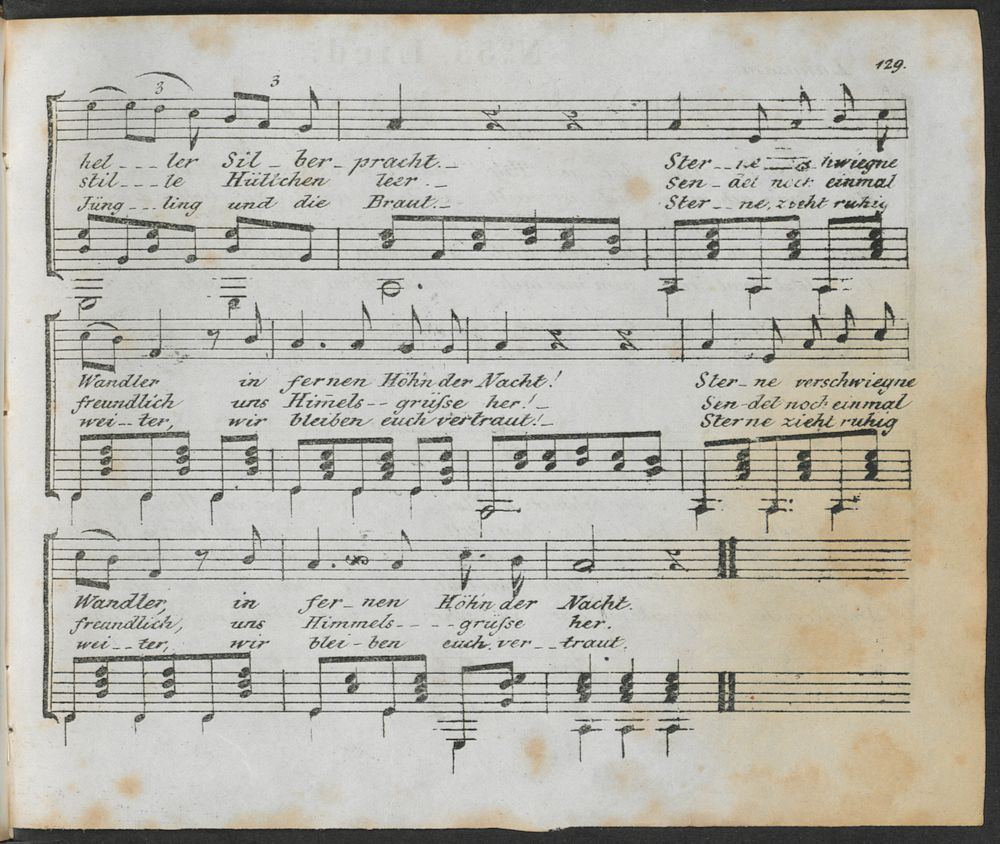 129.
3 3
hel - - - ler Sil - ber - pracht. - Ster - - ne hwiegne
stil - - - le Hüttchen leer. - Sen - det noch einmal
Jüng - - - ling und die Braut. - Ster - - ne, zieht ruhig
Wandler in fernen Höh'n der Nacht! Ster - ne verschwiegne
freundlich uns Him̄els - - grüsse her! - Sen - det noch einmal
wei - - ter, wir bleiben euch vertraut! - Sterne zieht ruhig
Wandler, in fer - nen Höh'n der Nacht.
freundlich, uns Himmels - - - - grüsse her.
wei - - ter, wir blei - ben euch ver - - traut.